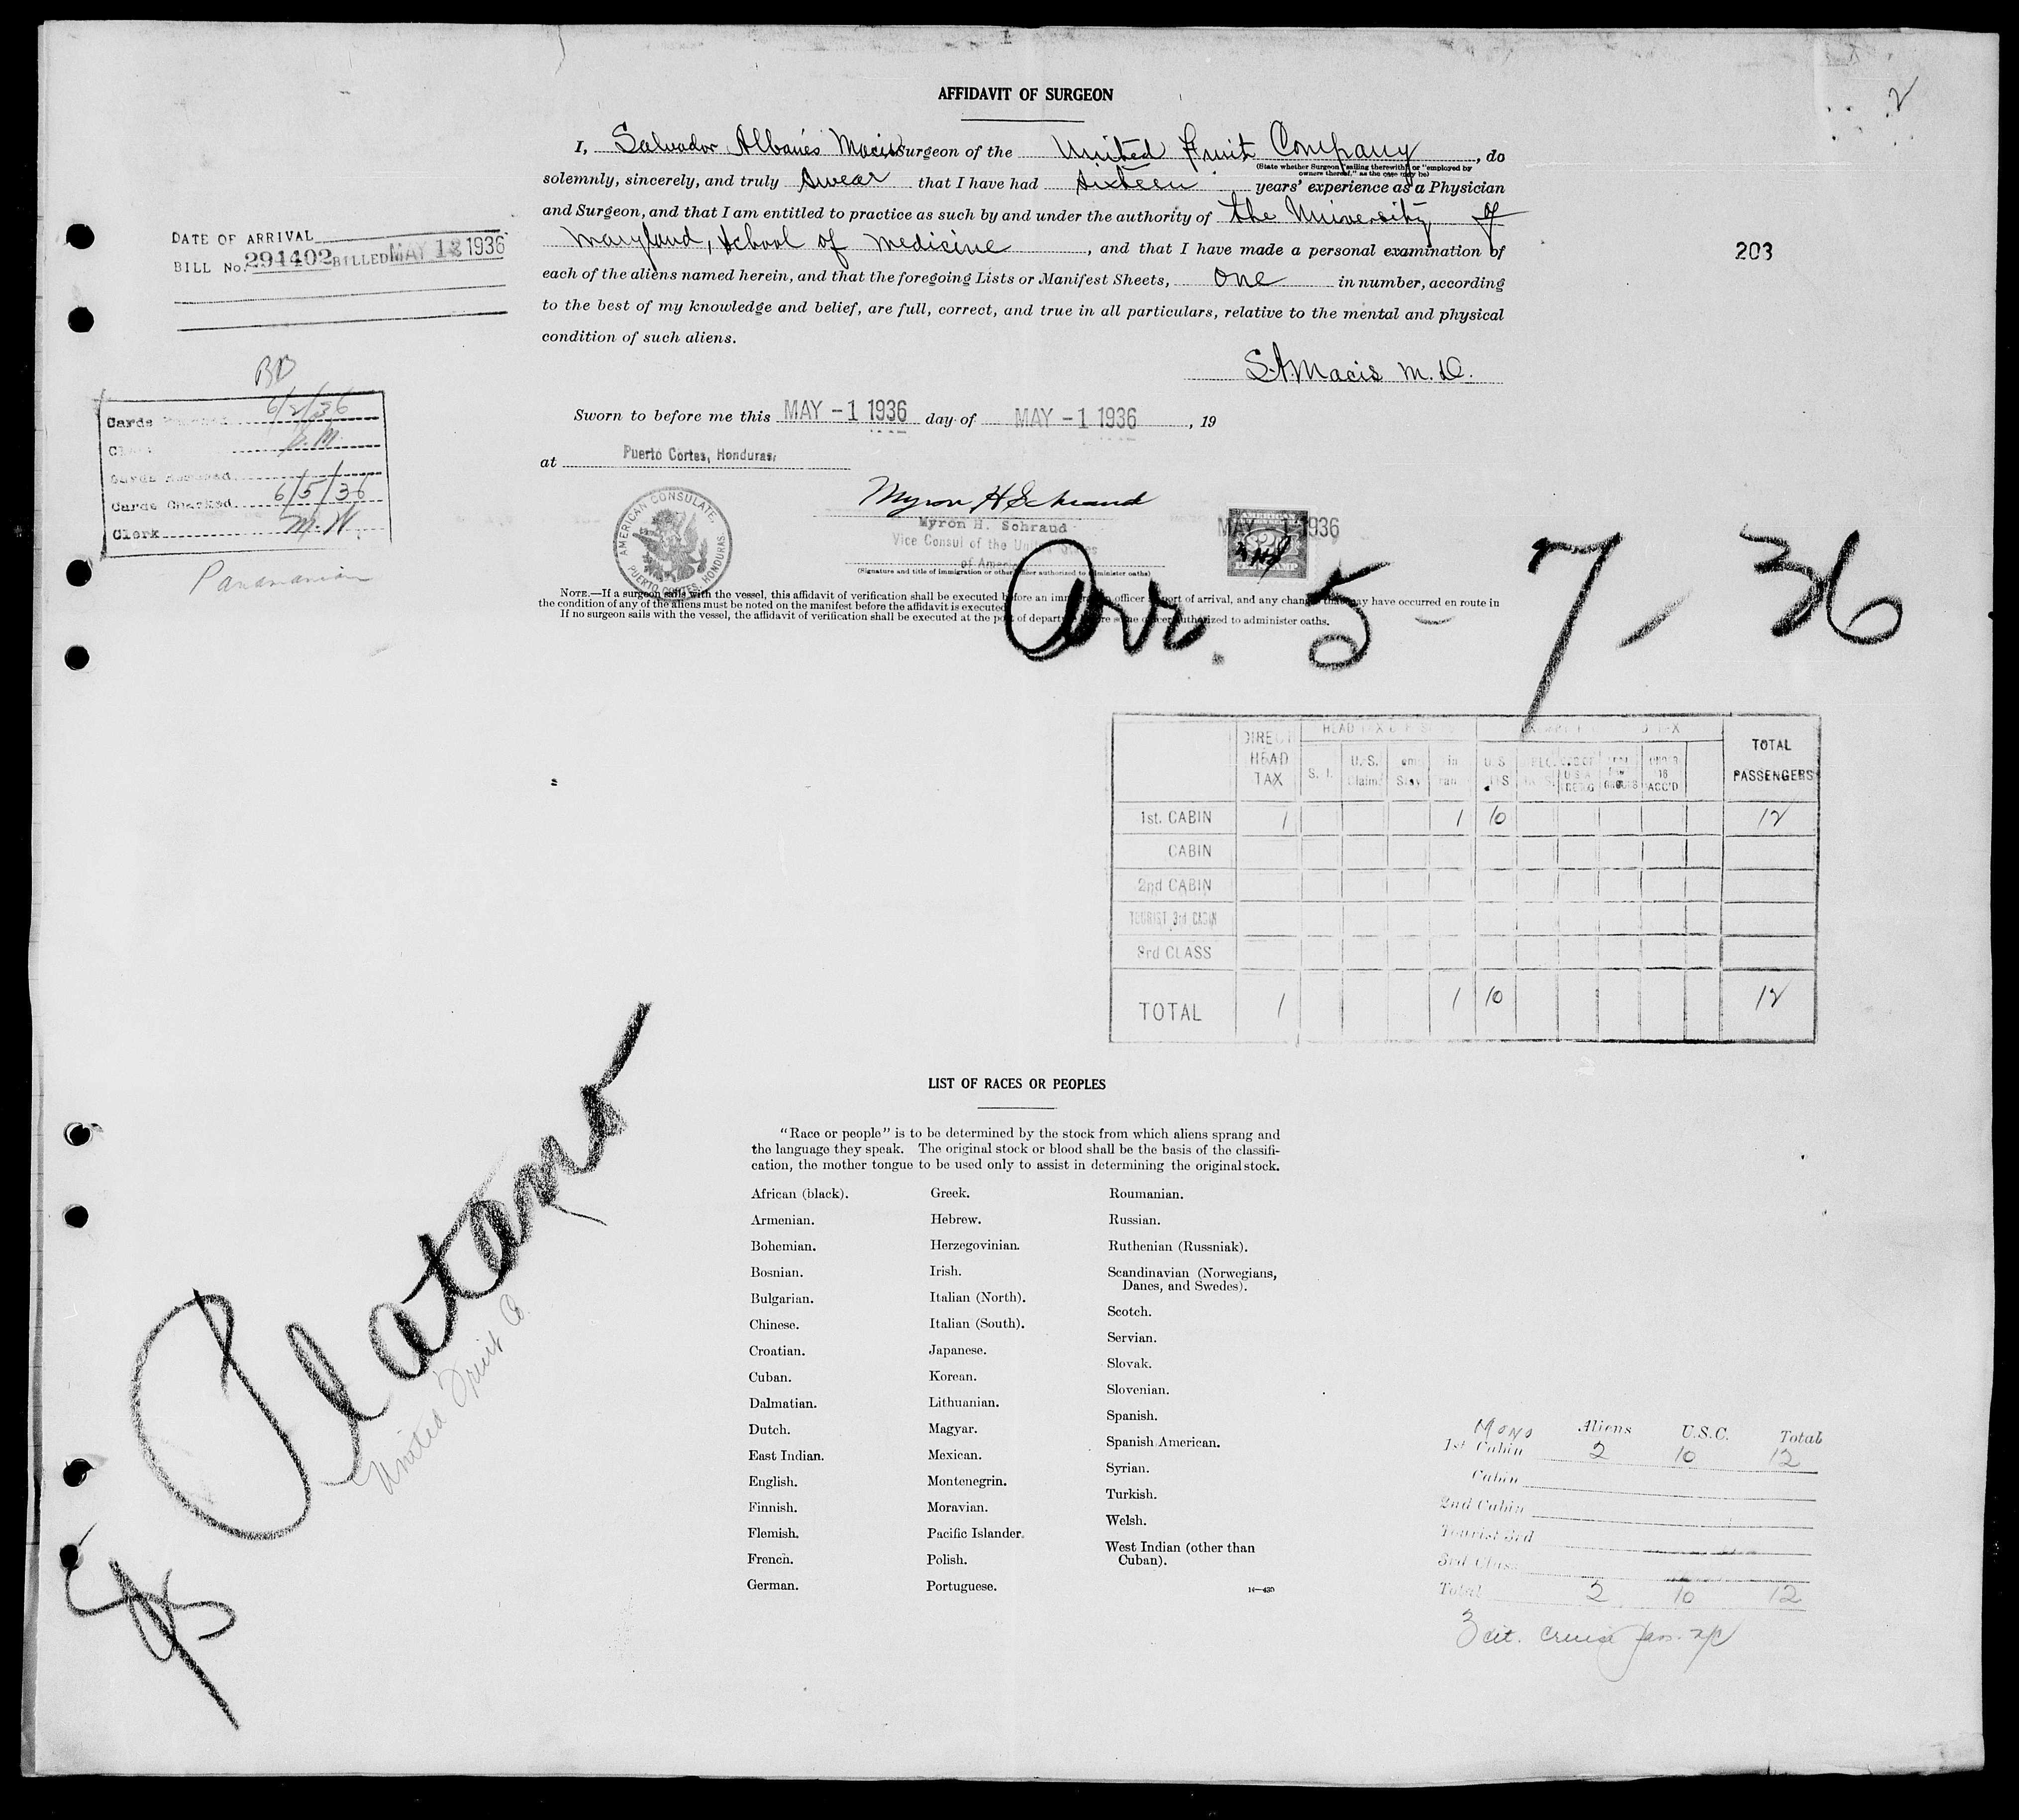 2
AFFIDAVIT OF SURGEON
I, Salvador Albanés Macis Surgeon of the United Fruit Company, do
(State whether Surgeon "sailing therewith," or "employed by
owners thereof," as the case may be)
solemnly, sincerely, and truly swear that I have had sixteen years' experience as a Physician
and Surgeon, and that I am entitled to practice as such by and under the authority of the University of
Maryland, School of Medicine, and that I have made a personal examination of
each of the aliens named herein, and that the foregoing Lists or Manifest Sheets, one in number, according
to the best of my knowledge and belief, are full, correct, and true in all particulars, relative to the mental and physical
condition of such aliens.
S. A. Macis M.D.
Sworn to before me this MAY -1 1936 day of MAY -1 1936, 19
at Puerto Cortes, Honduras,
203
DATE OF ARRIVAL
BILL No. 291402 BILLED MAY 12 1936
BD
Cards 6/2/36
Cards Checked 6/5/36
Clerk M. W.
Panamanian
AMERICAN CONSULATE, PUERTO CORTES, HONDURAS.
Myron H Schraud
Myron H. Schraud
Vice Consul of the United States
of America
(Signature and title of immigration or other officer authorized to administer oaths)
MAY -1 1936
AMERICAN
$2
FEE STAMP
NOTE.—If a surgeon sails with the vessel, this affidavit of verification shall be executed before an immigration officer at port of arrival, and any changes that may have occurred en route in
the condition of any of the aliens must be noted on the manifest before the affidavit is executed.
If no surgeon sails with the vessel, the affidavit of verification shall be executed at the port of departure before some officer authorized to administer oaths.
Arr. 5-7-36
DIRECT HEAD TAX
S. I.
U.S. Claim
TOTAL PASSENGERS
1st. CABIN 1 1 10 12
CABIN
2nd CABIN
TOURIST 3rd CABIN
3rd CLASS
TOTAL 1 1 10 12
Platano
United Fruit Co.
LIST OF RACES OR PEOPLES
"Race or people" is to be determined by the stock from which aliens sprang and
the language they speak. The original stock or blood shall be the basis of the classifi-
cation, the mother tongue to be used only to assist in determining the original stock.
African (black).
Armenian.
Bohemian.
Bosnian.
Bulgarian.
Chinese.
Croatian.
Cuban.
Dalmatian.
Dutch.
East Indian.
English.
Finnish.
Flemish.
French.
German.
Greek.
Hebrew.
Herzegovinian.
Irish.
Italian (North).
Italian (South).
Japanese.
Korean.
Lithuanian.
Magyar.
Mexican.
Montenegrin.
Moravian.
Pacific Islander.
Polish.
Portuguese.
Roumanian.
Russian.
Ruthenian (Russniak).
Scandinavian (Norwegians,
Danes, and Swedes).
Scotch.
Servian.
Slovak.
Slovenian.
Spanish.
Spanish American.
Syrian.
Turkish.
Welsh.
West Indian (other than
Cuban).
14—435
Mono Aliens U.S.C. Total
1st Cabin 2 10 12
Cabin
2nd Cabin
Tourist 3rd
3rd Class
Total 2 10 12
3 cit. cruise